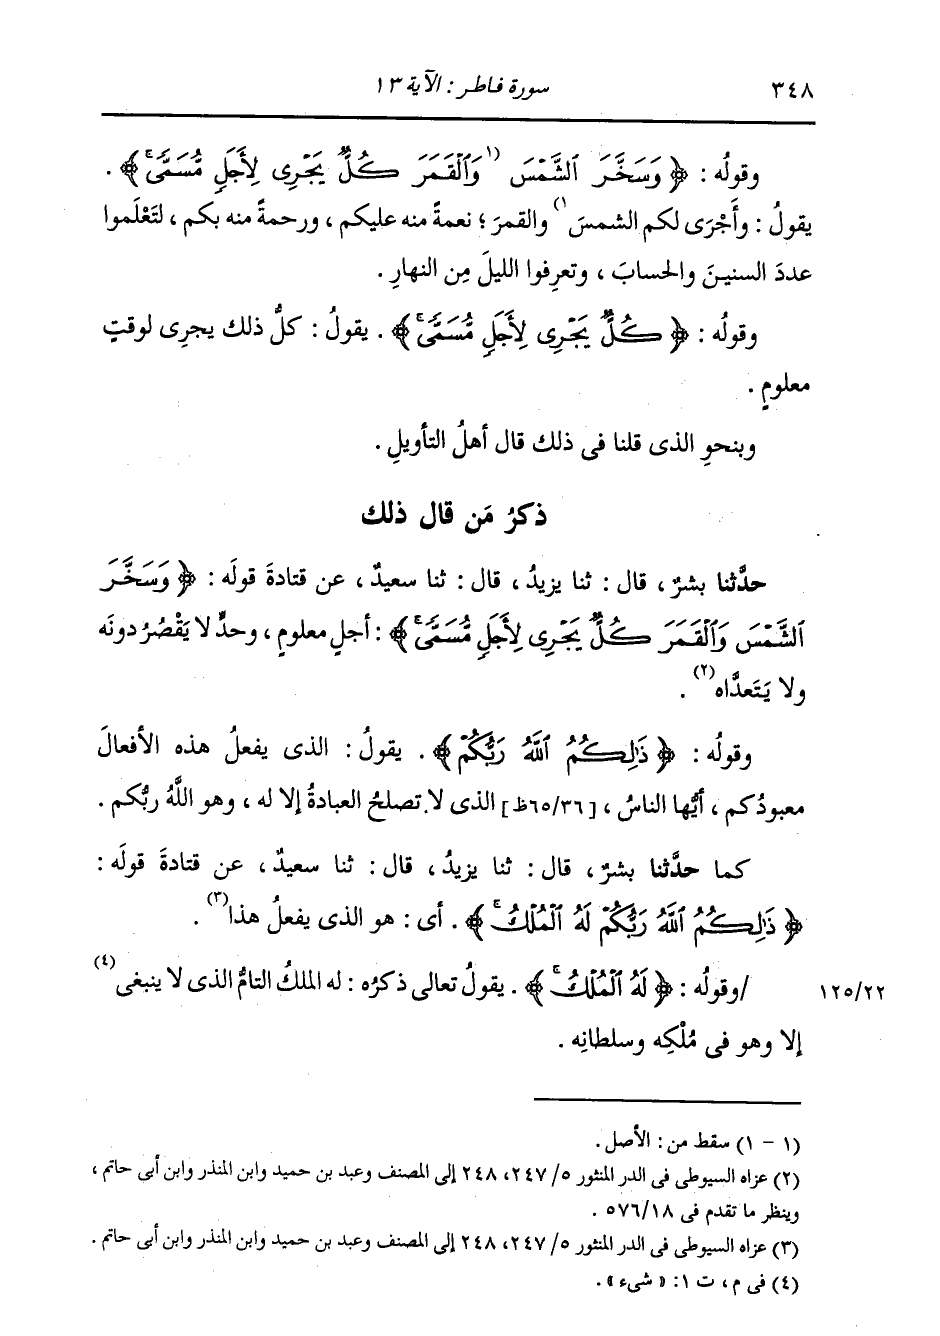 ٣٤٨ سورة فاطر : الآية ١٣
وقولُه : ﴿ وَسَخَّرَ ٱلشَّمْسَ (١وَٱلْقَمَرَ كُلٌّ يَجْرِى لِأَجَلٍ مُّسَمًّىۚ ﴾ .
يقولُ : وأَجْرَى لكم الشمسَ ١) والقمرَ ؛ نعمةً منه عليكم ، ورحمةً منه بكم ، لتَعْلَموا
عددَ السنينَ والحسابَ ، وتعرِفوا الليلَ مِن النهارِ .
وقولُه : ﴿ كُلٌّ يَجْرِى لِأَجَلٍ مُّسَمًّىۚ ﴾ . يقولُ : كلُّ ذلك يجرِى لوقتٍ
معلومٍ .
وبنحوِ الذى قلنا فى ذلك قال أهلُ التأويلِ .
ذكرُ مَن قال ذلك
حدَّثنا بشرٌ ، قال : ثنا يزيدُ ، قال : ثنا سعيدٌ ، عن قتادةَ قولَه : ﴿ وَسَخَّرَ
ٱلشَّمْسَ وَٱلْقَمَرَ كُلٌّ يَجْرِى لِأَجَلٍ مُّسَمًّىۚ ﴾ : أجلٍ معلومٍ ، وحدٍّ لا يَقْصُرُ دونَه
ولا يَتَعدَّاه (٢) .
وقولُه : ﴿ ذَٰلِكُمُ ٱللَّهُ رَبُّكُمْ ﴾ . يقولُ : الذى يفعلُ هذه الأفعالَ
معبودُكم ، أيُّها الناسُ ، [٦٥/٣٦ظ] الذى لا تصلحُ العبادةُ إلا له ، وهو اللَّهُ ربُّكم .
كما حدَّثنا بشرٌ ، قال : ثنا يزيدُ ، قال : ثنا سعيدٌ ، عن قتادةَ قولَه :
﴿ ذَٰلِكُمُ ٱللَّهُ رَبُّكُمْ لَهُ ٱلْمُلْكُۚ ﴾ . أى : هو الذى يفعلُ هذا (٣) .
١٢٥/٢٢ /وقولُه : ﴿ لَهُ ٱلْمُلْكُۚ ﴾ . يقولُ تعالى ذكرُه : له الملكُ التامُّ الذى لا ينبغى (٤)
إلا وهو فى مُلْكِه وسلطانِه .
(١ - ١) سقط من : الأصل .
(٢) عزاه السيوطى فى الدر المنثور ٥/ ٢٤٧، ٢٤٨ إلى المصنف وعبد بن حميد وابن المنذر وابن أبى حاتم ،
وينظر ما تقدم فى ٥٧٦/١٨ .
(٣) عزاه السيوطى فى الدر المنثور ٥/ ٢٤٧، ٢٤٨ إلى المصنف وعبد بن حميد وابن المنذر وابن أبى حاتم .
(٤) فى م ، ت ١: « شىء » .